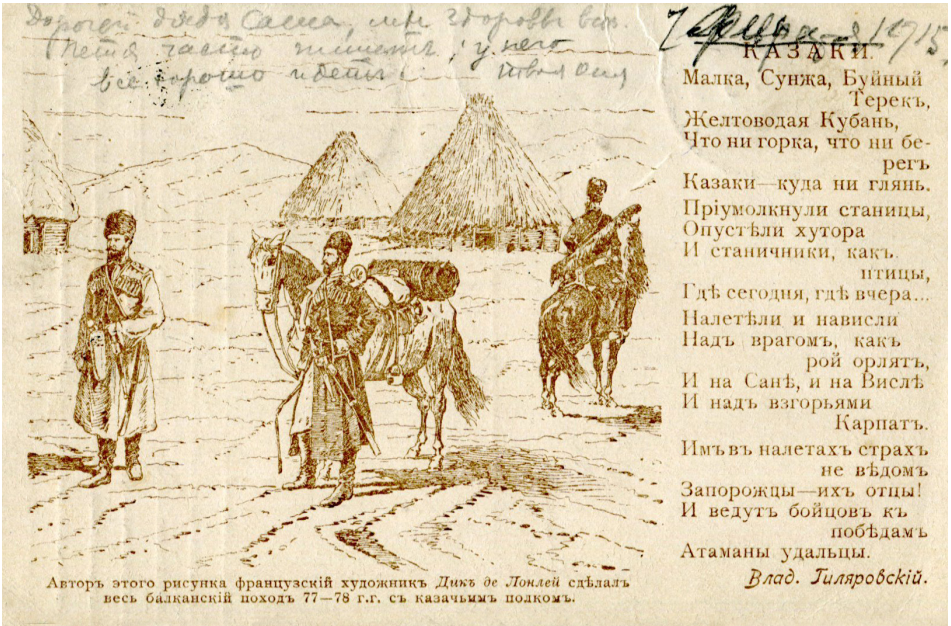 Дорогой дядя Саша, мы здоровы все.
Петя часто пишетъ у него
все хорошо идетъ. твоя Оля
1915
КАЗАКИ.
Малка, Сунжа, Буйный
Терекъ,
Желтоводая Кубань,
Что ни горка, что ни бе-
регъ
Казаки—куда ни глянь.
Пріумолкнули станицы,
Опустѣли хутора
И станичники, какъ
птицы,
Гдѣ сегодня, гдѣ вчера...
Налетѣли и нависли
Надъ врагомъ, какъ
рой орлятъ,
И на Санѣ, и на Вислѣ
И надъ взгорьями
Карпатъ.
Имъ въ налетахъ страхъ
не вѣдомъ
Запорожцы—ихъ отцы!
И ведутъ бойцовъ къ
побѣдамъ
Атаманы удальцы.
Влад. Гиляровскій.
Авторъ этого рисунка французскій художникъ Дикъ де Лонлей сдѣлалъ
весь балканскій походъ 77—78 г.г. съ казачьимъ полкомъ.